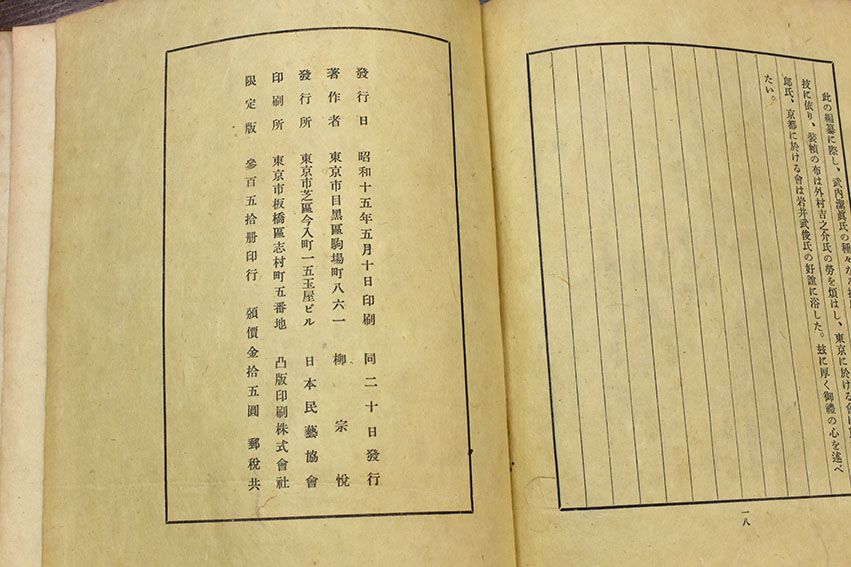 此の編纂に際し、武內潔眞氏の種々なる
技に依り、裝幀の布は外村吉之介氏の勞を煩はし、東京に於ける會は
郎氏、京都に於ける會は岩井武俊氏の好誼に浴した。玆に厚く御禮の心を述べ
たい。
一八
發行日 昭和十五年五月十日印刷 同二十日發行
著作者 東京市目黑區駒場町八六一 柳宗悅
發行所 東京市芝區今入町一五玉屋ビル 日本民藝協會
印刷所 東京市板橋區志村町五番地 凸版印刷株式會社
限定版 參百五拾册印行 頒價金拾五圓 郵稅共